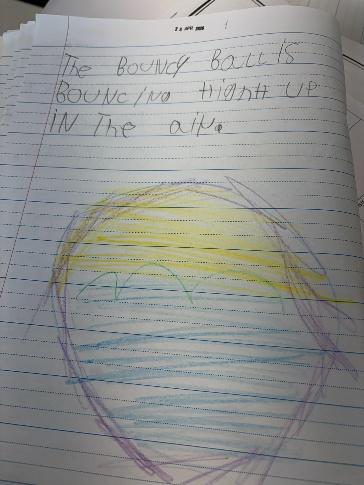 28 APR 2026
The BOUNCY BALL iS
BOUNCiNG HigHH UP
iN The aiR.